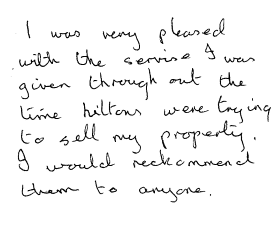 I was very pleased
with the servise I was
given through out the
time hiltons were trying
to sell my property.
I would reckommend
them to anyone.